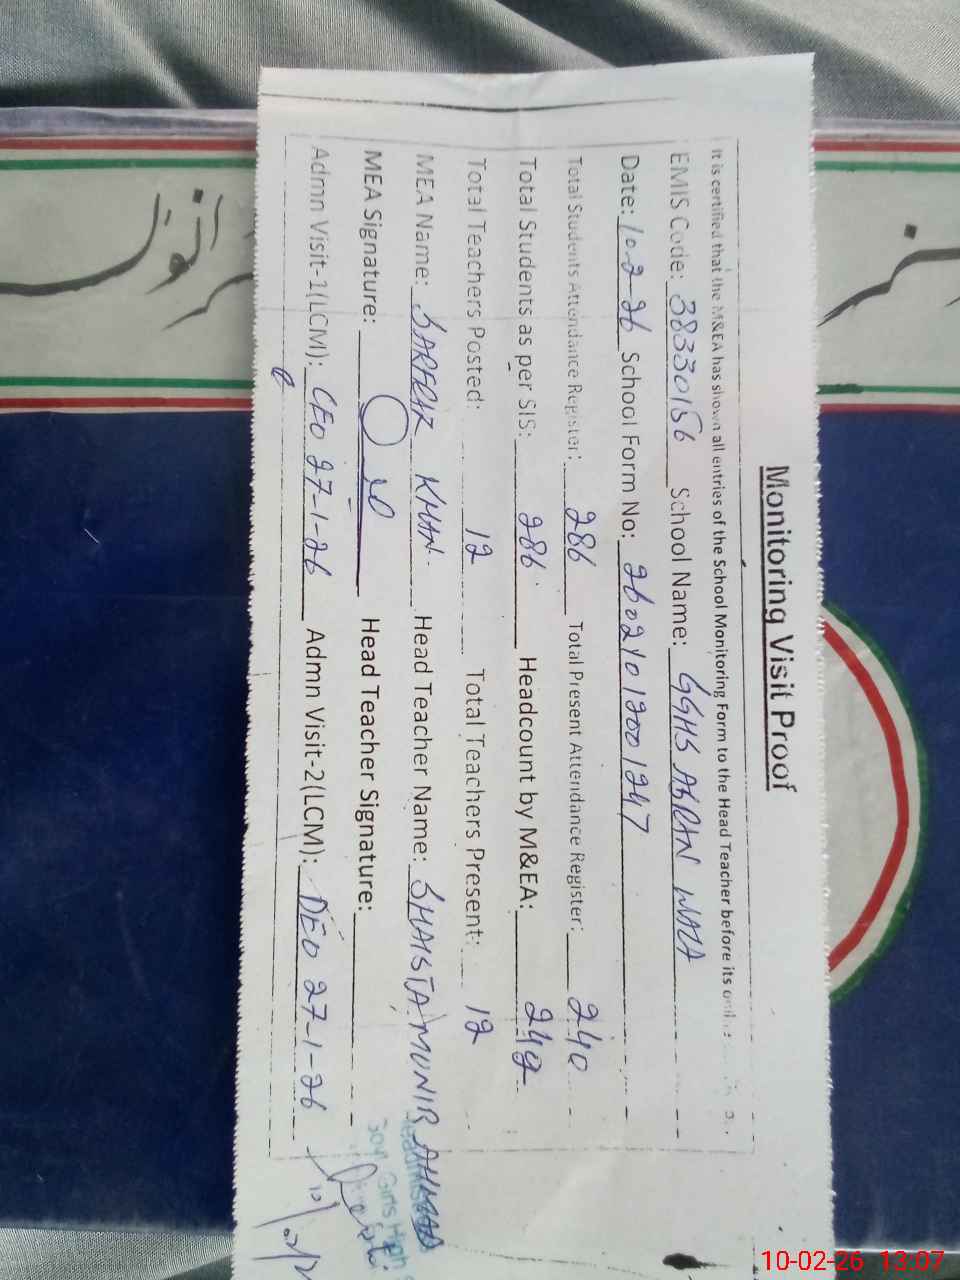 Monitoring Visit Proof
It is certified that the M&EA has shown all entries of the School Monitoring Form to the Head Teacher before its
EMIS Code: 38330156 School Name: GGHS ABBAN WAZA
Date: 10-2-26 School Form No: 26021012001247
Total Students Attendance Register: 286 Total Present Attendance Register: 240
Total Students as per SIS: 286 Headcount by M&EA: 240
Total Teachers Posted: 12 Total Teachers Present: 12
MEA Name: SARFRAZ KHAN Head Teacher Name: SHAISTA MUNIR AHMAD
MEA Signature: Head Teacher Signature:
Admn Visit-1(LCM): CEO 27-1-26 Admn Visit-2(LCM): DEO 27-1-26
Headmistress
Govt. Girls High
10-02-26 13:07